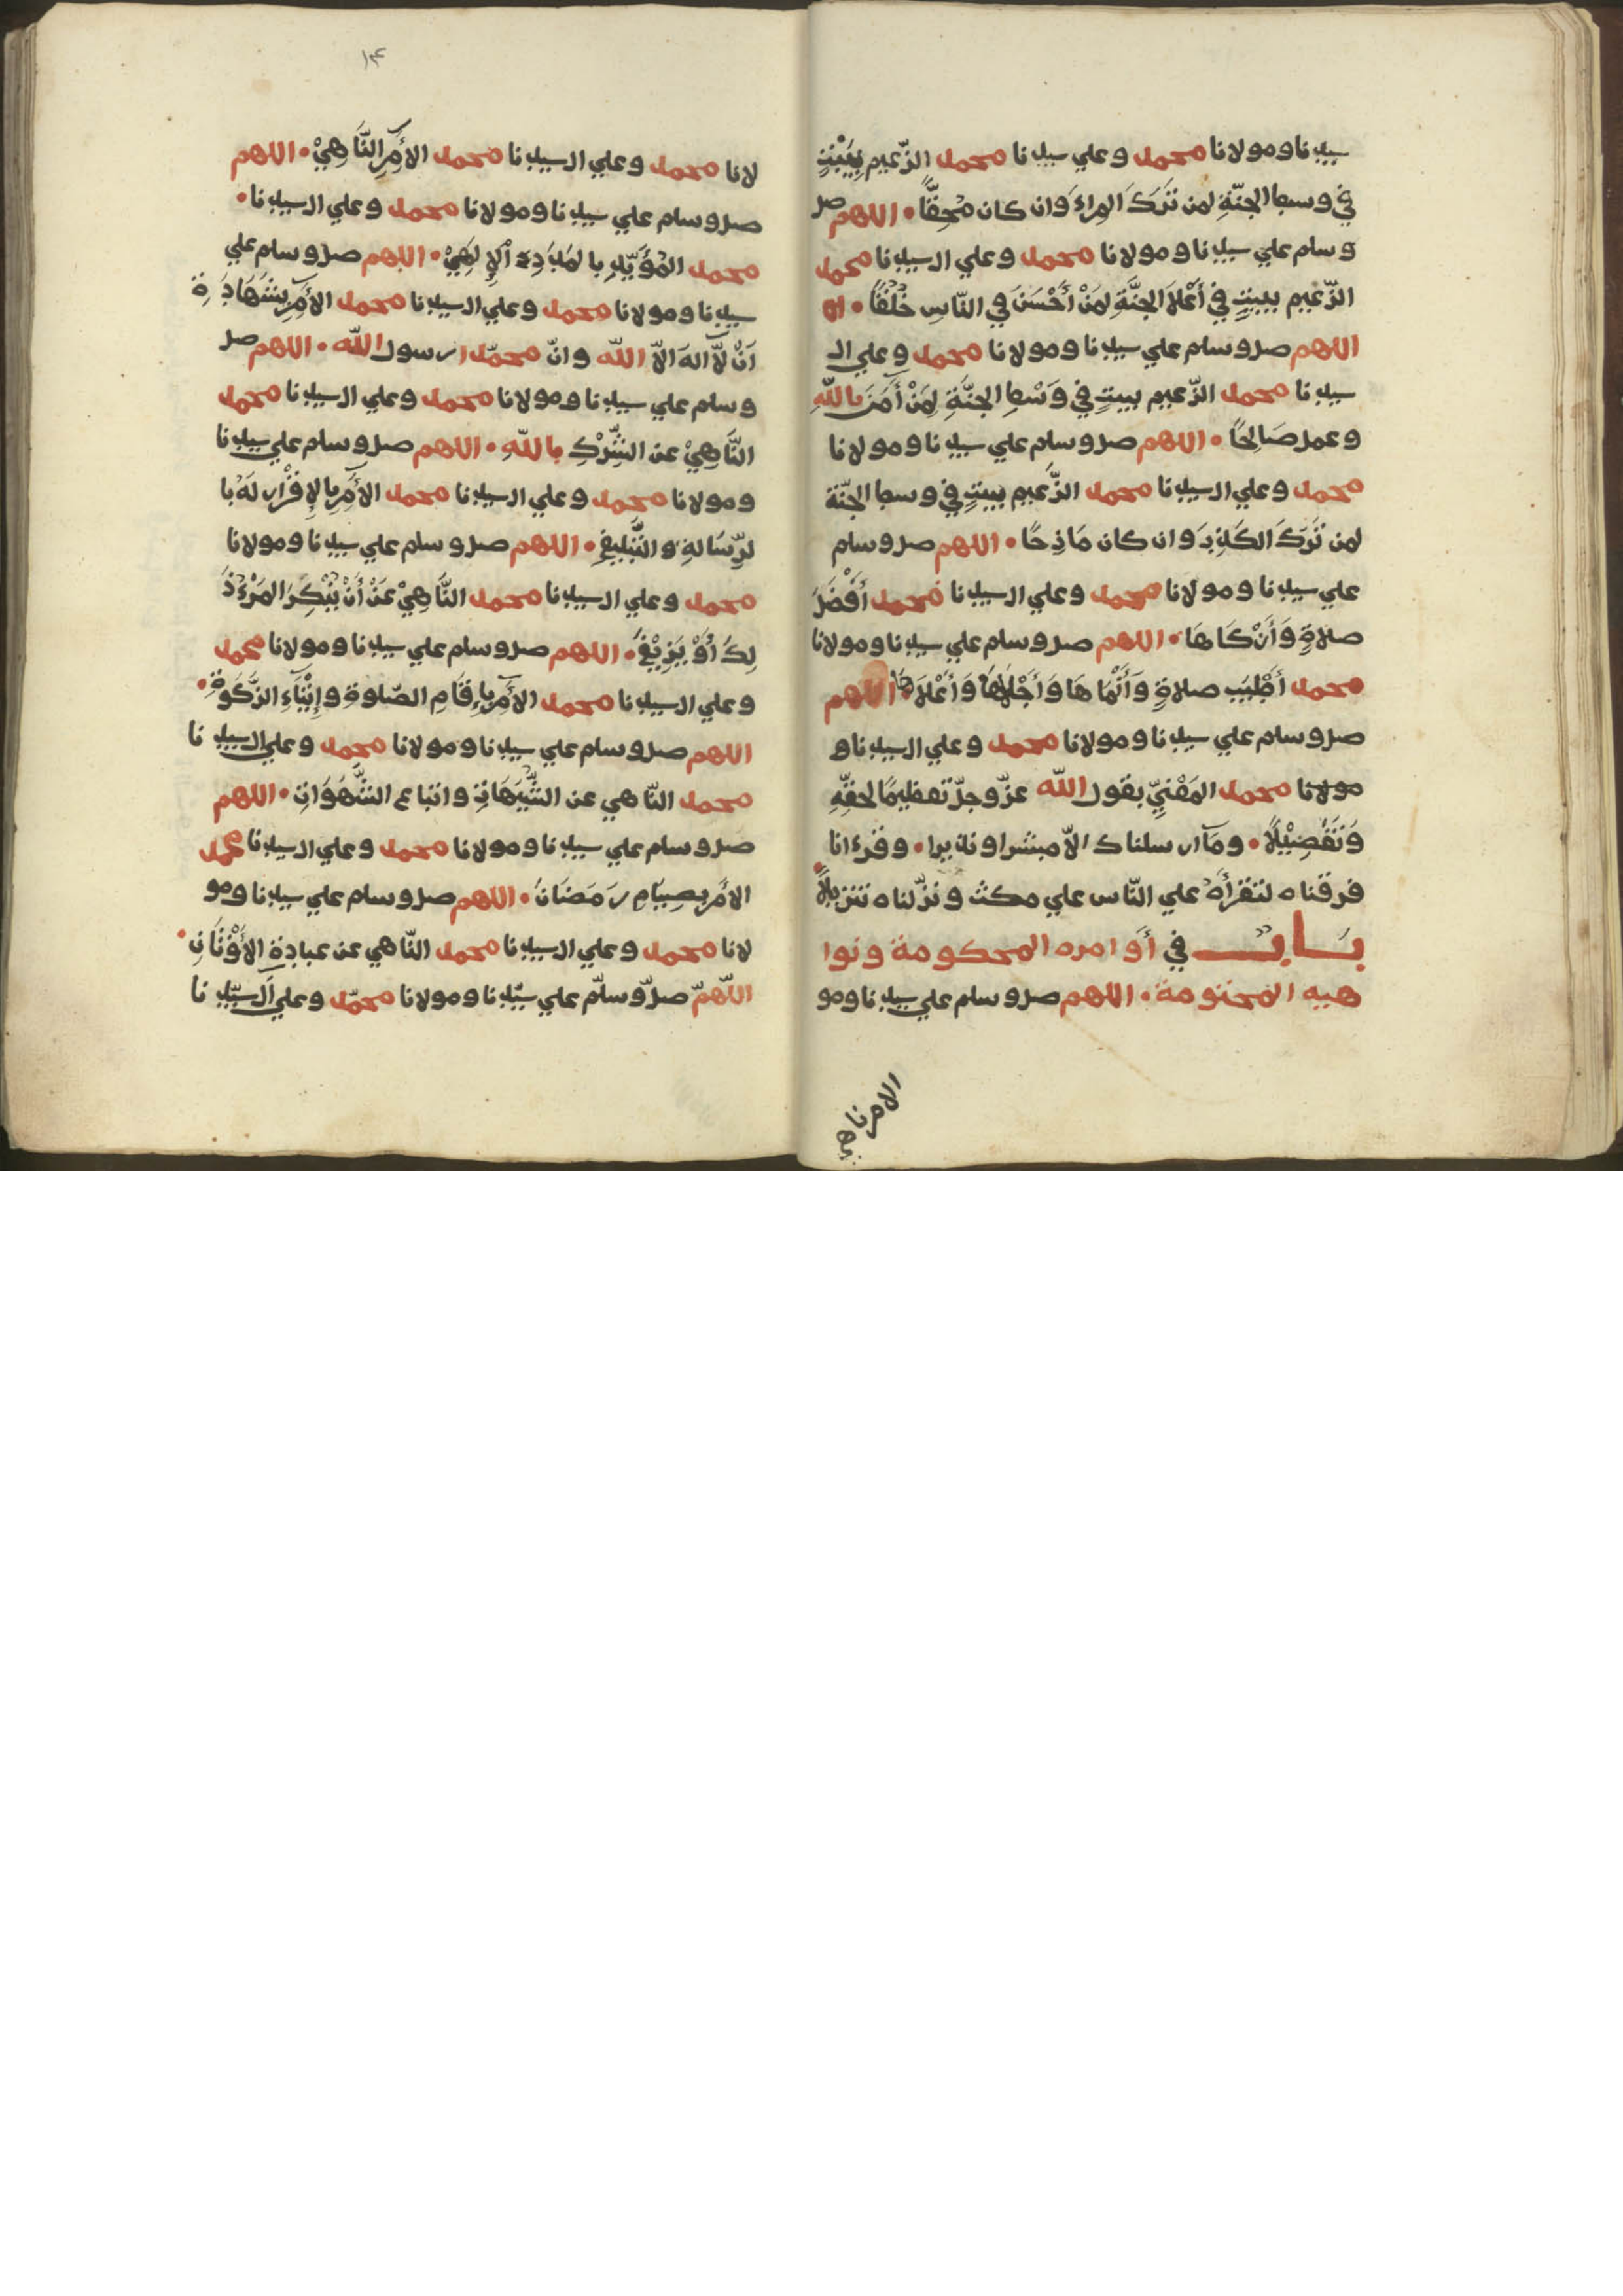 سيدنا ومولانا محمد وعلي سيدنا محمد الزّعيم بِبَيْتٍ
في وسط الجنّةِ لمن تَرَكَ المِراءَ وَان كان مُحِقًّا • اللهم صل
وسلم علي سيدنا ومولانا محمد وعلي ال سيدنا محمد
الزّعيم ببيتٍ في أَعْلاَ الجنَّةِ لِمَنْ أَحْسَنَ في النّاسِ خُلُقًا •
اللهم صل وسلم علي سيدنا ومولانا محمد وعلي ال
سيدنا محمد الزّعيم ببيتٍ في وَسْطِ الجنَّةِ لِمَنْ أَمَنَ باللّهِ
وعمل صَالِحًا • اللهم صل وسلم علي سيدنا ومولانا
محمد وعلي ال سيدنا محمد الزَّعيم ببيتٍ في وسط الجنّة
لمن تَرَكَ الكَذِبَ وَان كان مَازِحًا • اللهم صل وسلم
علي سيدنا ومولانا محمد وعلي ال سيدنا محمد أَفْضَلَ
صلاةٍ وَأَزْكَاهَا • اللهم صل وسلم علي سيدنا ومولانا
محمد أَطْيَبَ صلاةٍ وَأَنْمَاهَا وَأَجْلاَهَا وَأَعْلاَهَا • اللهم
صل وسلم علي سيدنا ومولانا محمد وعلي ال سيدنا و
مولانا محمد المَعْنِيِّ بقول اللّه عزّ وجلّ تعظيمًا لحقّهِ
وَتَفْضِيْلاً • ومَآ ارسلناك الاّ مبشرا ونذيرا • وقرءانا
فرقناه لتقرأَهُ علي النّاس علي مكث ونزّلناه تنزيلاً •
بَابٌ في أَوامره المحكومة ونوا
هيه المختومة • اللهم صل وسلم علي سيدنا ومو
الامرناهي
١٣
لانا محمد وعلي ال سيدنا محمد الأَمِرِ النَّاهِيْ • اللهم
صل وسلم علي سيدنا ومولانا محمد وعلي ال سيدنا •
محمد المُؤَيَّدِ بالمَدَدِ الإِلَهِيْ • اللهم صل وسلم علي
سيدنا ومولانا محمد وعلي ال سيدنا محمد الأَمِرِ بشَهَادَةِ
اَنْ لاّ الهَ الاّ اللّه وانّ محمّدا رسول اللّه • اللهم صل
وسلم علي سيدنا ومولانا محمد وعلي ال سيدنا محمد
النَّاهِيْ عن الشِّرْكِ باللّهِ • اللهم صل وسلم علي سيدنا
ومولانا محمد وعلي ال سيدنا محمد الأَمِرِ بالإِقْرَارِ لَهُ با
لرِّسَالةِ والتَّبْلِيغِ • اللهم صل وسلم علي سيدنا ومولانا
محمد وعلي ال سيدنا محمد النَّاهِيْ عَنْ أَنْ يُنْكِرَ المَرْءُ ذَ
لِكَ أَوْ يَزِيْغَ • اللهم صل وسلم علي سيدنا ومولانا محمد
وعلي ال سيدنا محمد الأَمِرِ بِإِقَامِ الصّلوة وإِيْتَآءِ الزَّكَوةِ •
اللهم صل وسلم علي سيدنا ومولانا محمد وعلي ال سيدنا
محمد النّاهي عن الشُّبَهَاتِ واتباع الشَّهَوَاتِ • اللهم
صل وسلم علي سيدنا ومولانا محمد وعلي ال سيدنا محمد
الأَمِرِ بصِيَامِ رَمَضَانَ • اللهم صل وسلم علي سيدنا ومو
لانا محمد وعلي ال سيدنا محمد النّاهي عن عبادةِ الأَوْثَانِ •
اللّهمّ صلّ وسلّم علي سيّدنا ومولانا محمّد وعلي اَل سيّدنا